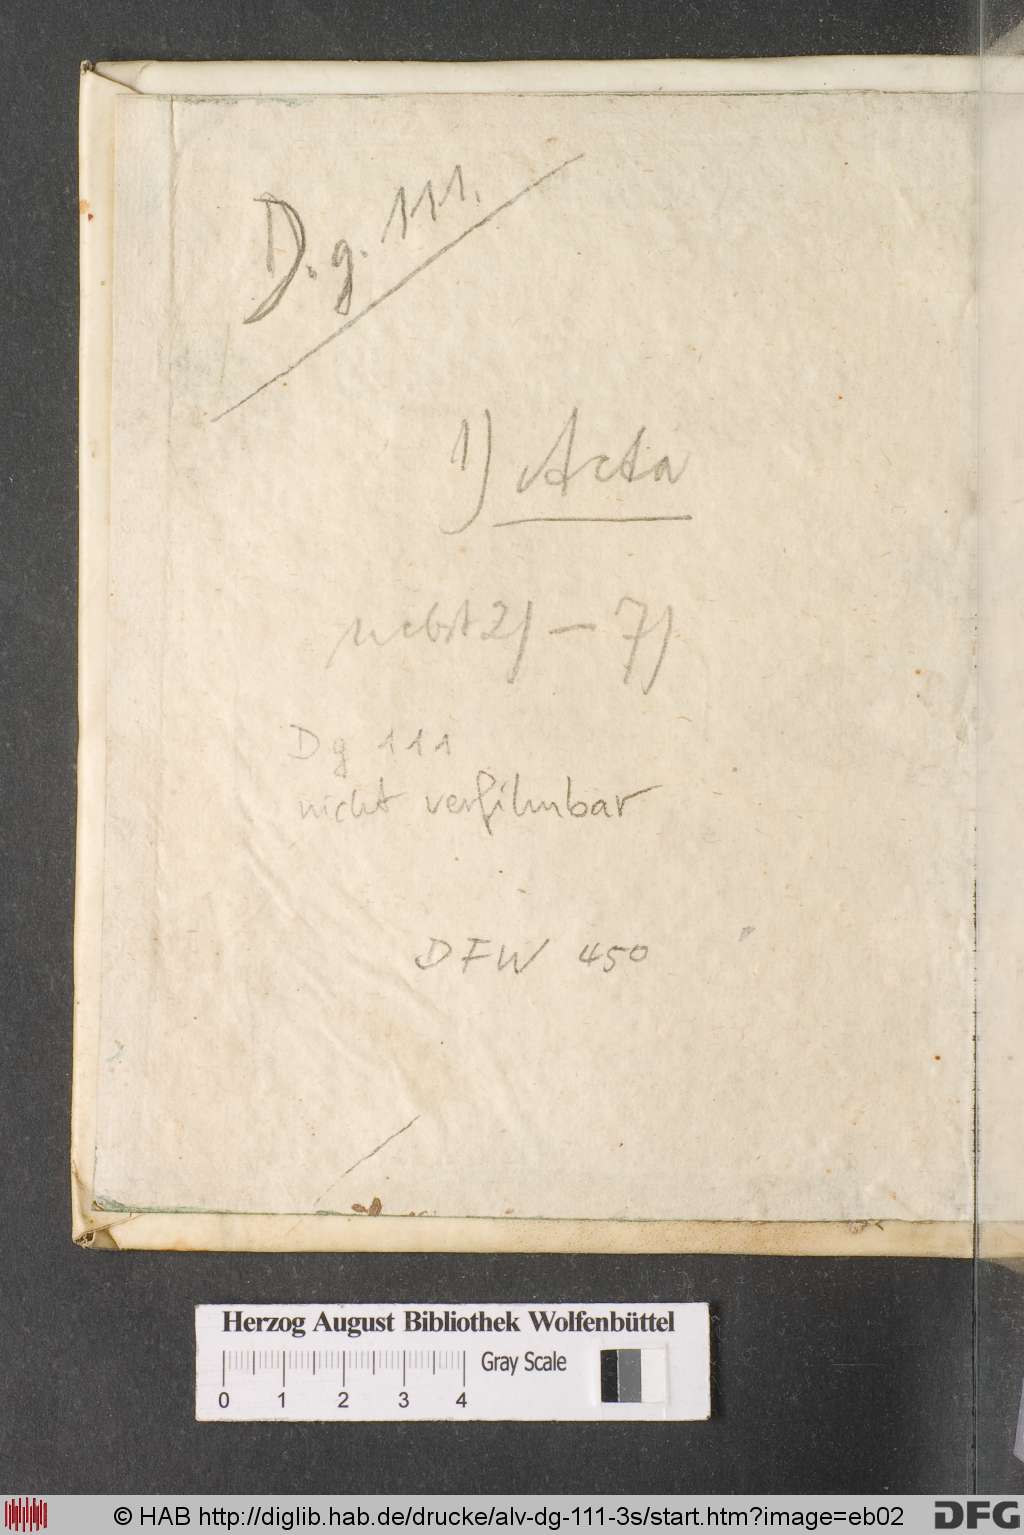 D. g. 111.
1) Acta
nebst 2) — 7)
Dg 111
nicht verfilmbar
DFW 450
Herzog August Bibliothek Wolfenbüttel
Gray Scale
0 1 2 3 4
© HAB http://diglib.hab.de/drucke/alv-dg-111-3s/start.htm?image=eb02
DFG